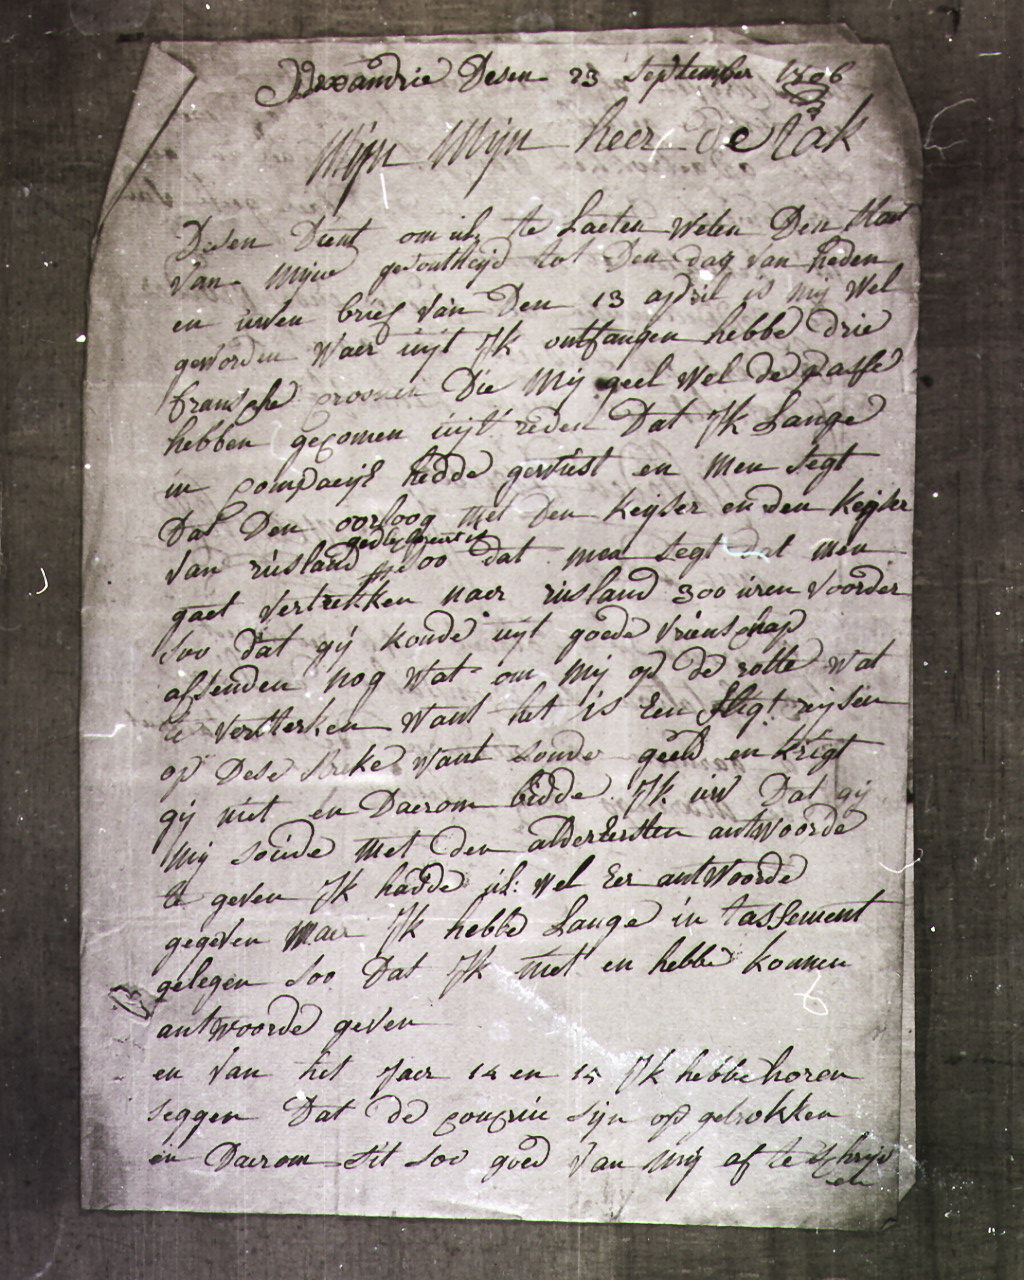 Alexandrie Desen 23 september 1806
Mijn Mijn heer de tak
Desen Dient om ul: te Laeten Weten Den staet
van Mijne gesontheijd tot Den dag van heden
en uwen brief van Den 13 april is mij Wel
geworden Waer uijt Jk ontfangen hebbe drie
fransche croonen Die Mij geel Wel de passe
hebben gecomen uijt reden Dat Jk Lange
in compaeije hedde geweest en Men segt
Dat Den oorloog met Den Keijser en den Keijser
van rusland soo dat men segt dat men
gaet vertrekken naer rusland 300 uren voorder
soo dat gij konde uijt goede vrienschap
afsenden nog wat om Mij op de rotte wat
te versterken Want het is Een slegt reijsen
op Dese streke want sonde geeld en krigt
gij niet en Daerom bidde Jk uw Dat gij
Mij soude Met den alderersten antwoorde
te geven Jk hadde ul: wel Eer antwoorde
gegeven Maer Jk hebbe Lange in tassement
gelegen soo Dat Jk niet en hebbe konnen
antwoorde geven
en van het Jaer 14 en 15 Jk hebbe horen
seggen Dat de concrie sijn op getrokken
en Daerom sit soo goed van Mij af te schrijven